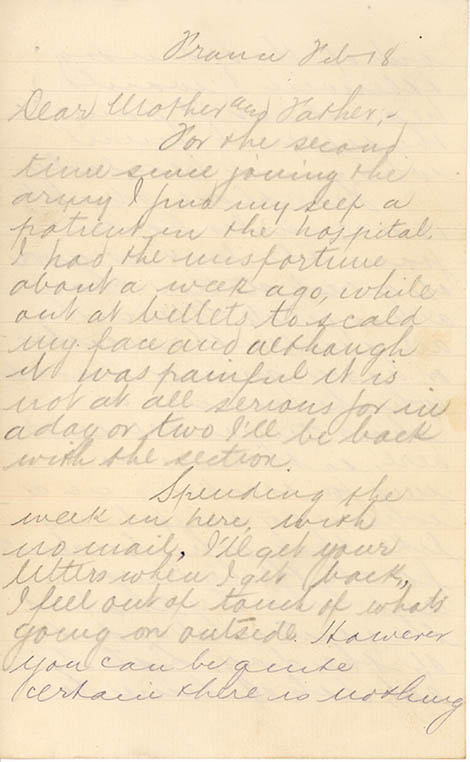 France Feb 18
Dear Mother and Father,-
For the second
time since joining the
army I find my self a
patient in the hospital.
I had the misfortune
about a week ago, while
out at billets to scald
my face and although
it was painful it is
not at all serious for in
a day or two I'll be back
with the section.
Spending the
week in here, with
no mail, I'll get your
letters when I get back,
I feel out of touch of what's
going on outside. However
you can be quite
certain there is nothing